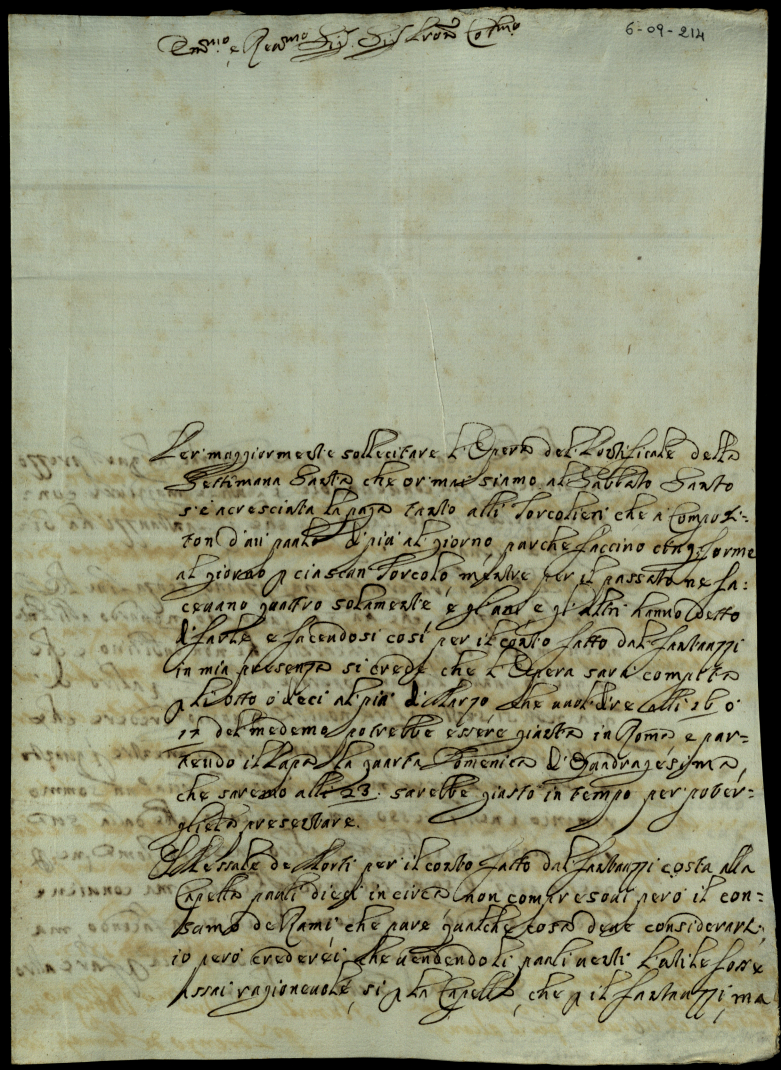 6-09-214
Em.mo e Reu.mo Sig. Sig. Pron Col.mo
Per maggiormente sollecitare l'Opera del Pontificale della
Settimana Santa che or mai siamo al Sabbato Santo
s'è acresciuta la paga tanto alli Torcolieri che a Composi=
tori d'un paulo di più al giorno, purche faccino cinq. forme
al giorno p ciascun Torcolo, mentre per il passato ne fa=
ceuano quattro solamente e gl'uni e gl'altri hanno detto
di farle, e facendosi così per il conto fatto dal Fantauzzi
in mia presenza si crede che l'Opera sarà compita
p li otto ò dieci al più di Marzo che uuol dire alli 16 ò
17 del medemo potrebbe essere giunta in Roma e par=
tendo il Papa la quarta Domenica di Quadragesima,
che saremo alli 23. sarebbe giusto in tempo per poter=
gliela presentare.
Il Messale de Morti per il conto fatto dal Fantauzzi costa alla
Capella pauli dieci in circa non compresoui però il con=
sumo de Rami che pare qualche cosa deue considerarsi
io però crederei che uendendoli pauli uenti l'utile fosse
assai ragioneuole, si p la Capella, che p il Fantauzzi, ma